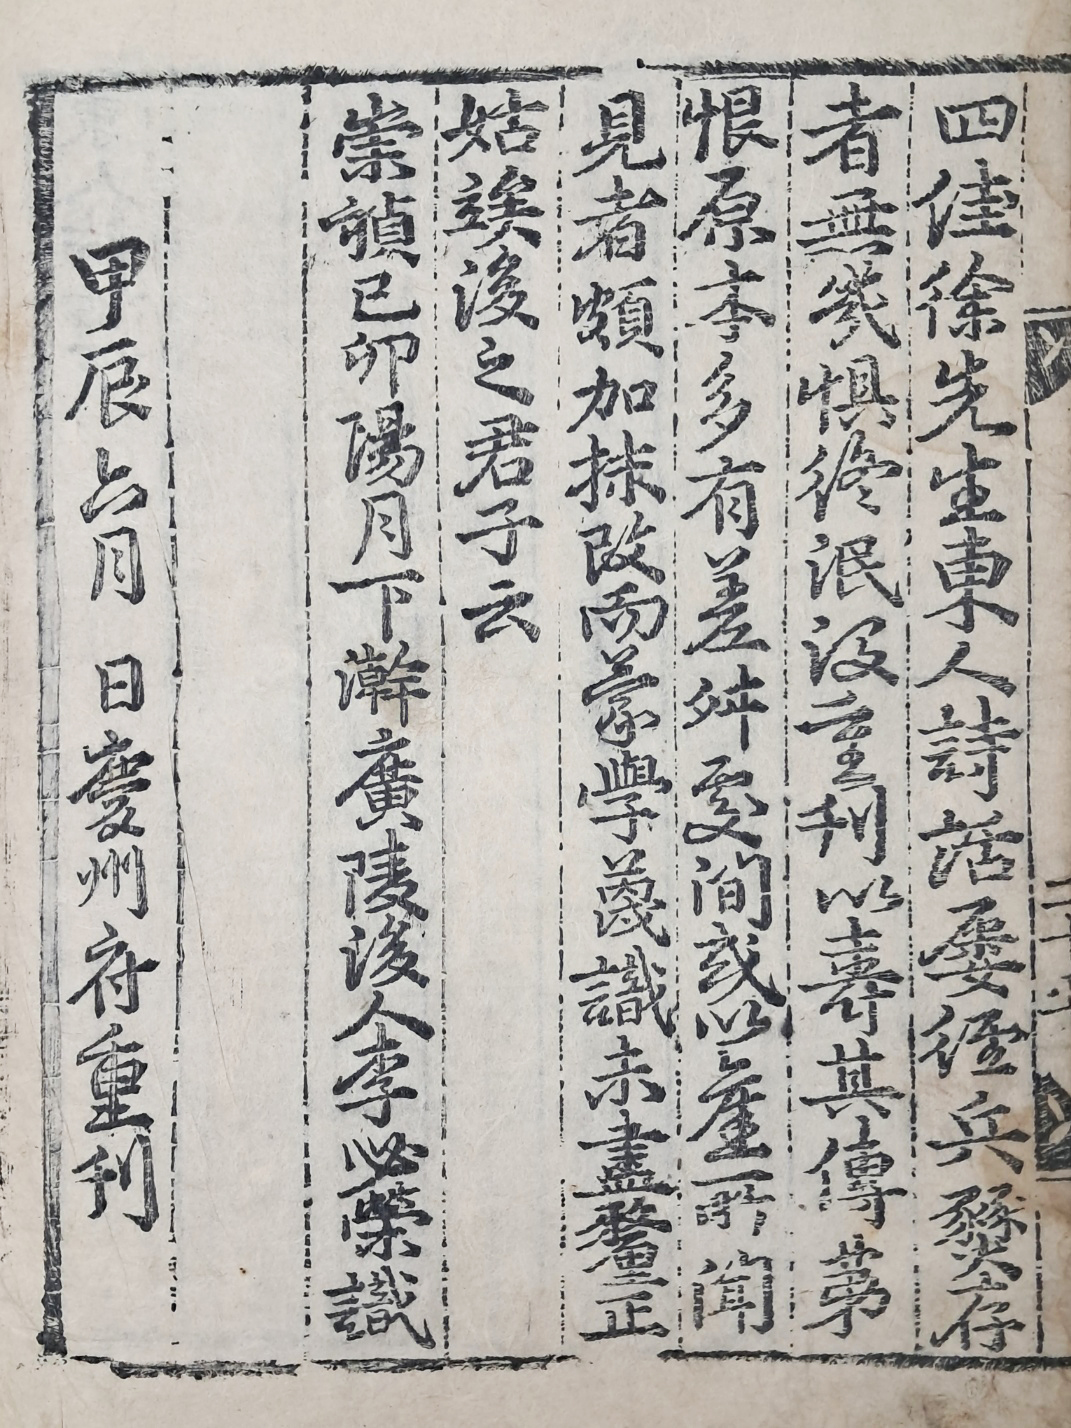 四佳徐先生東人詩話屢經兵燹存
者無幾惧終泯沒玆刊以壽其傳第
恨原本多有差舛處間或以產一所聞
見者頗加抹改而蒙學蔑識未盡釐正
姑竢後之君子云
崇禎己卯陽月下澣廣陵後人李必榮識
甲辰六月 日慶州府重刊